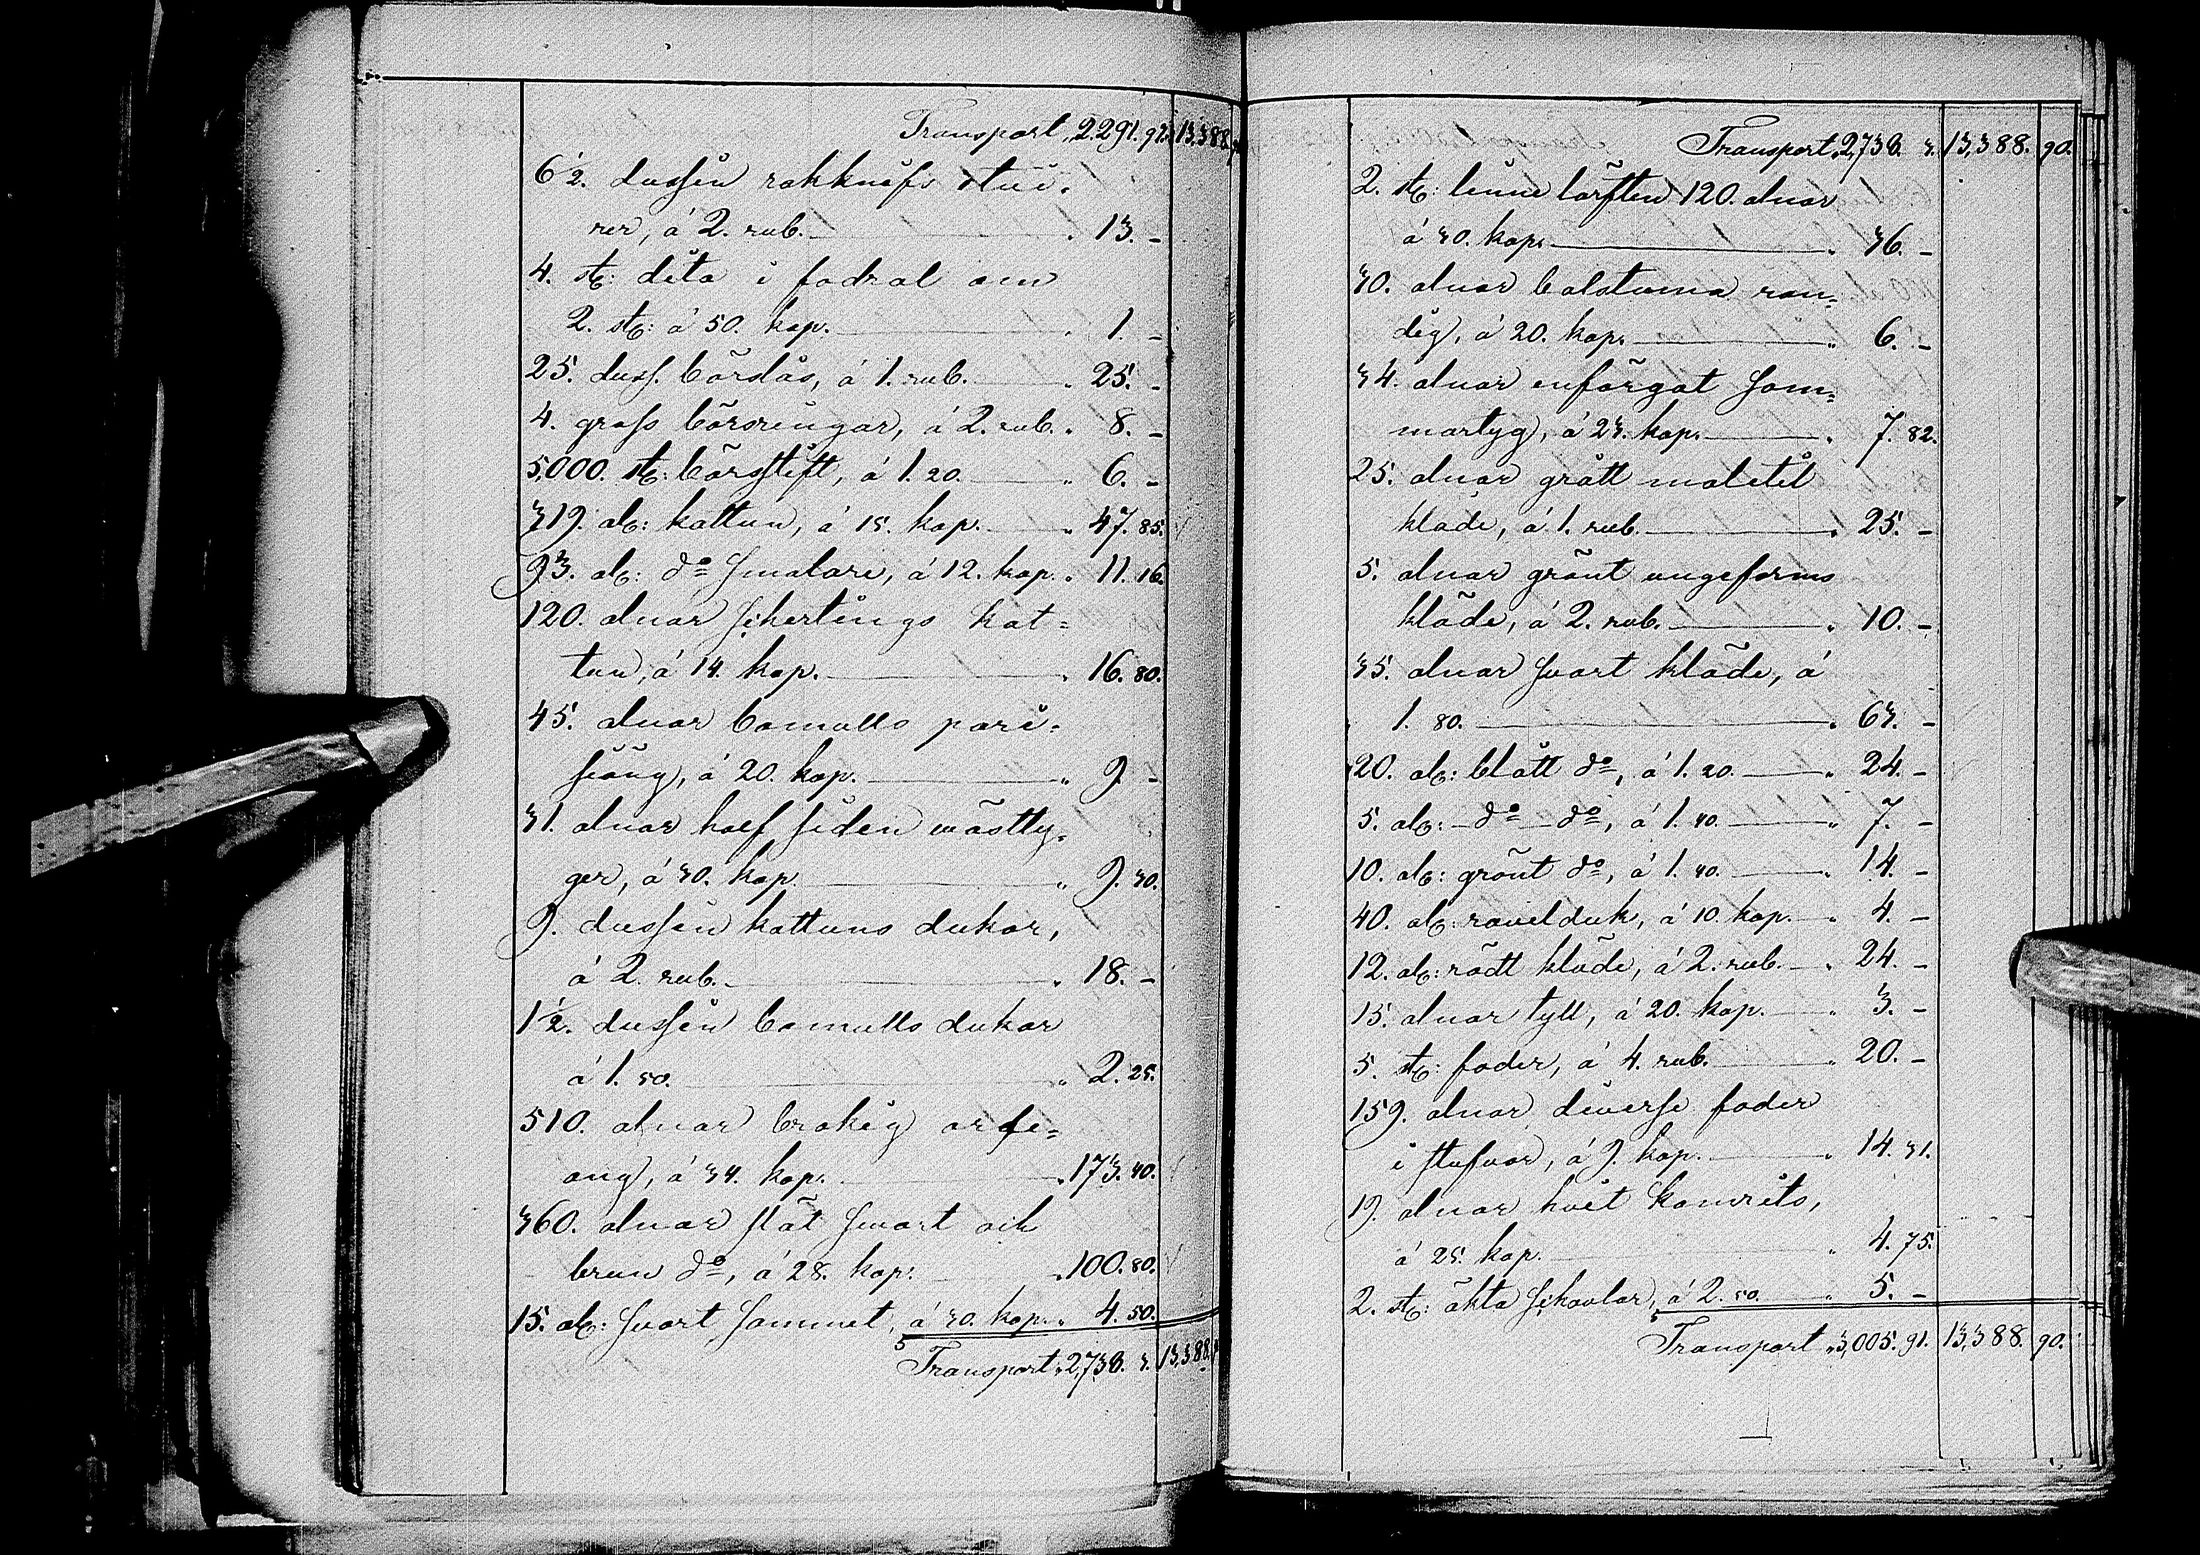 Transport, 2.291. 92. 13,388.
6½. dussin rakknifs stui-
rer, á 2. rub. " 13. -
4. st: dito i fodral om
2. st: á 50. kop. " 1. -
25. duss. börslås, á 1. rub. " 25. -
4. gross börsringar, á 2. rub. " 8. -
5,000. st: börsstift, á 1. 20. " 6. -
319. al: kattun, á 15. kop. " 47. 85.
93. al: do smalare, á 12. kop. " 11. 16.
120. alnar schertings kat=
tun, á 14. kop. " 16. 80.
45. alnar bomulls pari=
siäng, á 20. kop. " 9. -
31. alnar half siden västty=
ger, á 30. kop. " 9. 30.
9. dussin kattuns dukar,
á 2. rub. " 18. -
1½. dussin bomulls dukar
á 1. 50. " 2. 25.
510. alnar brokig orle=
ang, á 34. kop. " 173. 40.
360. alnar slät svart och
brun do, á 28. kop. " 100. 80.
15. al: svart sammet, á 30. kop. " 4. 50.
Transport " 2,738. 3. 13,388.
Transport " 2,738. 3. 13,388. 90.
2. st: linne lärften 120. alnar
á 30. kop. " 36. -
30. alnar bolstuma ran=
dig, á 20. kop. " 6. -
34. alnar enfärgat som=
martyg, á 23. kop. " 7. 82.
25. alnar grått moletil
kläde, á 1. rub. " 25. -
5. alnar grönt ungeforms
kläde, á 2. rub. " 10. -
35. alnar svart kläde, á
1. 80. " 63. -
20. al: blått do, á 1. 20. " 24. -
5. al: do do, á 1. 40. " 7. -
10. al: grönt do, á 1. 40. " 14. -
40. al: ravelduk, á 10. kop. " 4. -
12. al: rödt kläde, á 2. rub. " 24. -
15. alnar tyll, á 20. kop. " 3. -
5. st: foder, á 4. rub. " 20. -
159. alnar diverse foder
i stufvar, á 9. kop. " 14. 31.
19. alnar hvit kamrits,
á 25. kop. " 4. 75.
2. st: äkta schavlar, á 2. 50. " 5. -
Transport " 3,005. 91. 13,388. 90.